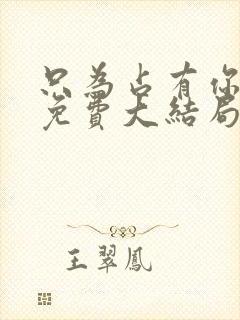 只為占有你
免費大結局
王翠鳳